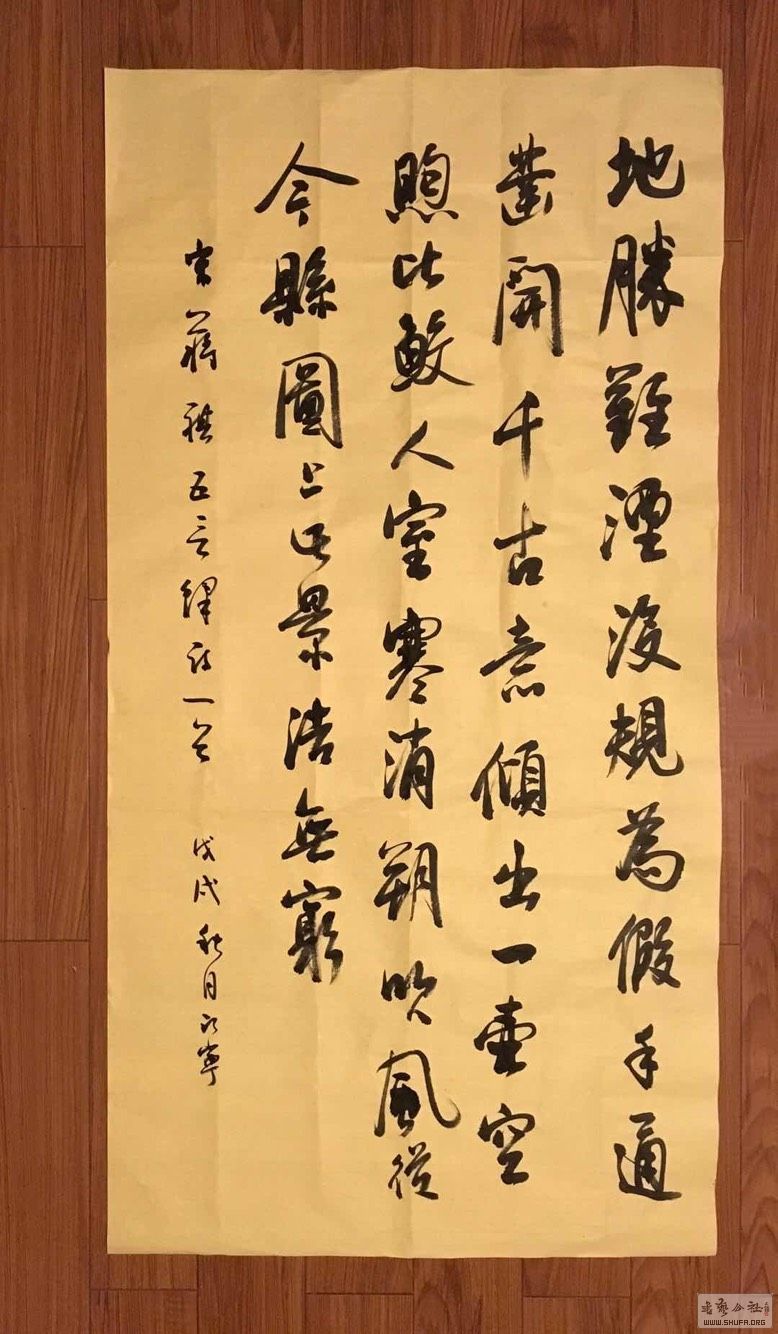 地勝難湮没規為假手通
鑿開千古意傾出一壺空
煦比鮫人室寒消朔吹風從
今縣圖上此景浩無窮
宋蔣祺五言律詩一首 戊戌秋月
WWW.SHUFA.ORG